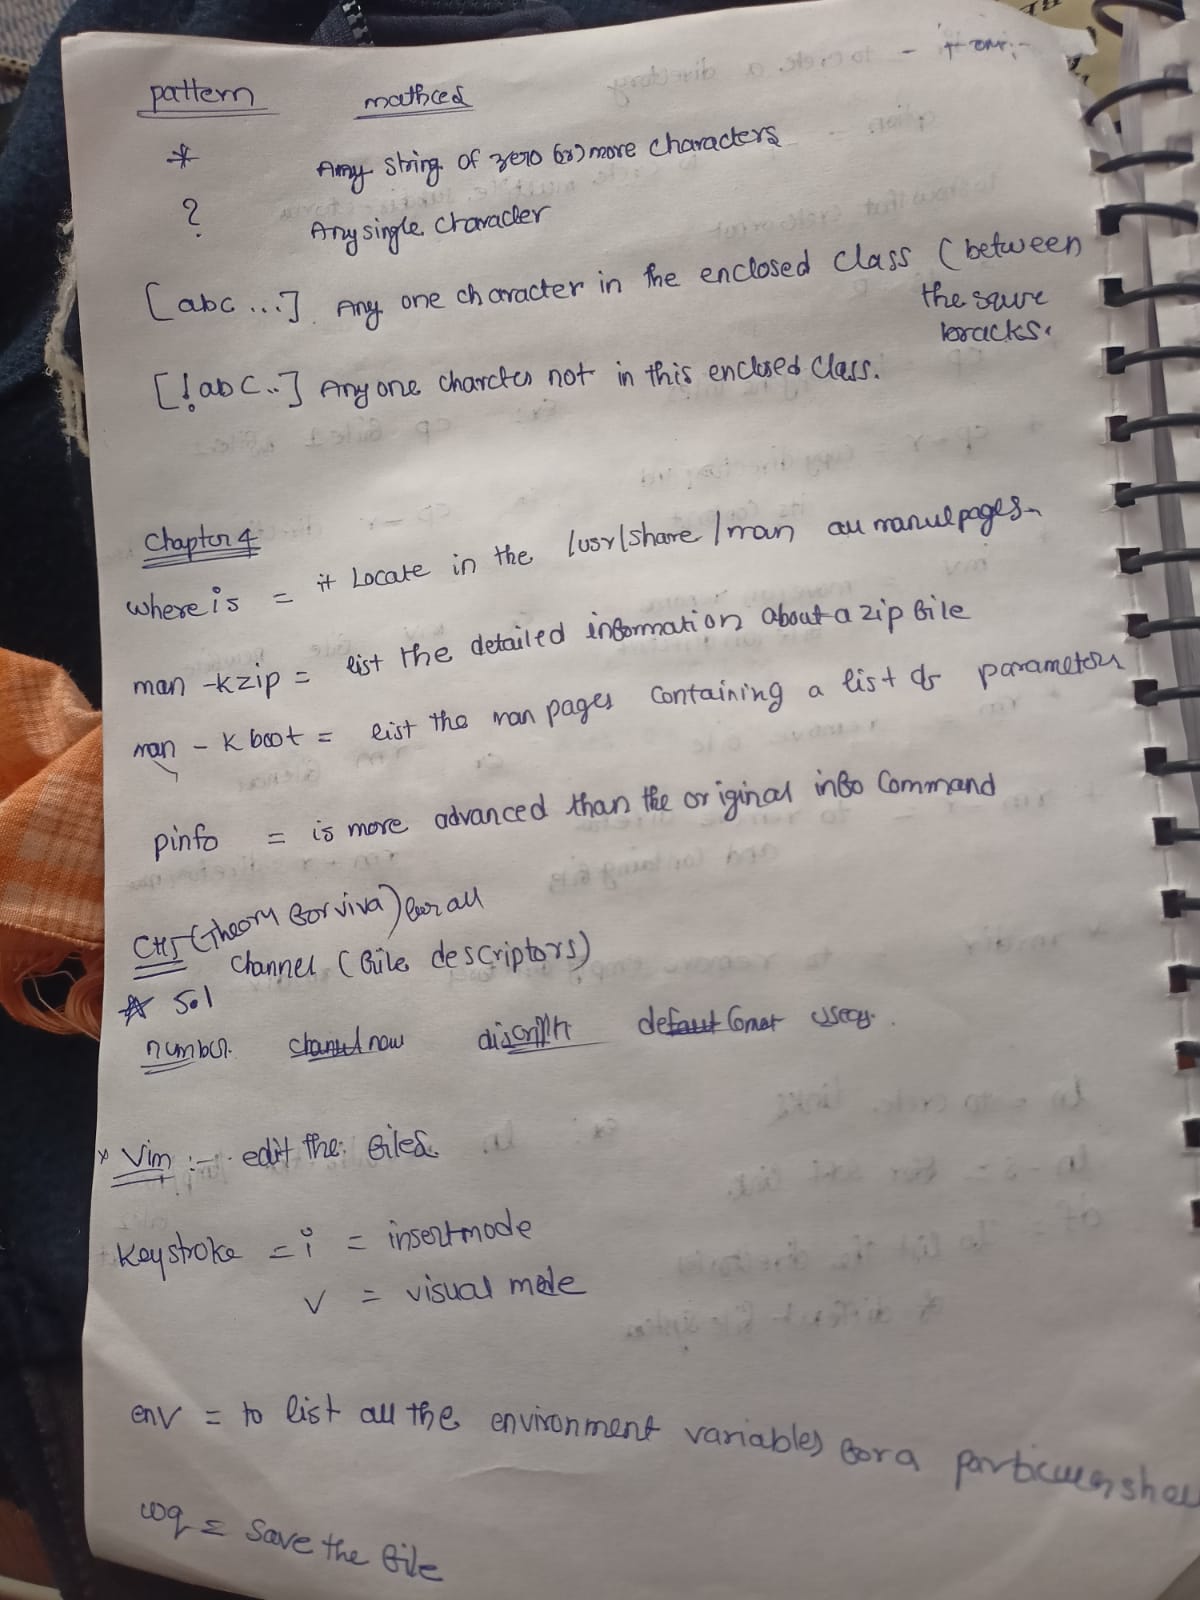 pattern mathced
* Any string of zero (or) more characters
? Any single character
[abc...] Any one character in the enclosed class (between
the squre
bracks.
[!abc..] Any one charctes not in this enclosed class.
Chapter 4
where is = it Locate in the /usr/share/man all manul pages
man -k zip = list the detailed information about a zip file
man - k boot = list the man pages containing a list of parameters
pinfo = is more advanced than the original info command
CH5 (Theory for viva) for all
channel (file descriptors)
5.1
number
* Vim :- edit the files
Keystroke = i = insert mode
v = visual mode
env = to list all the environment variables for a particular shell
wq = save the file